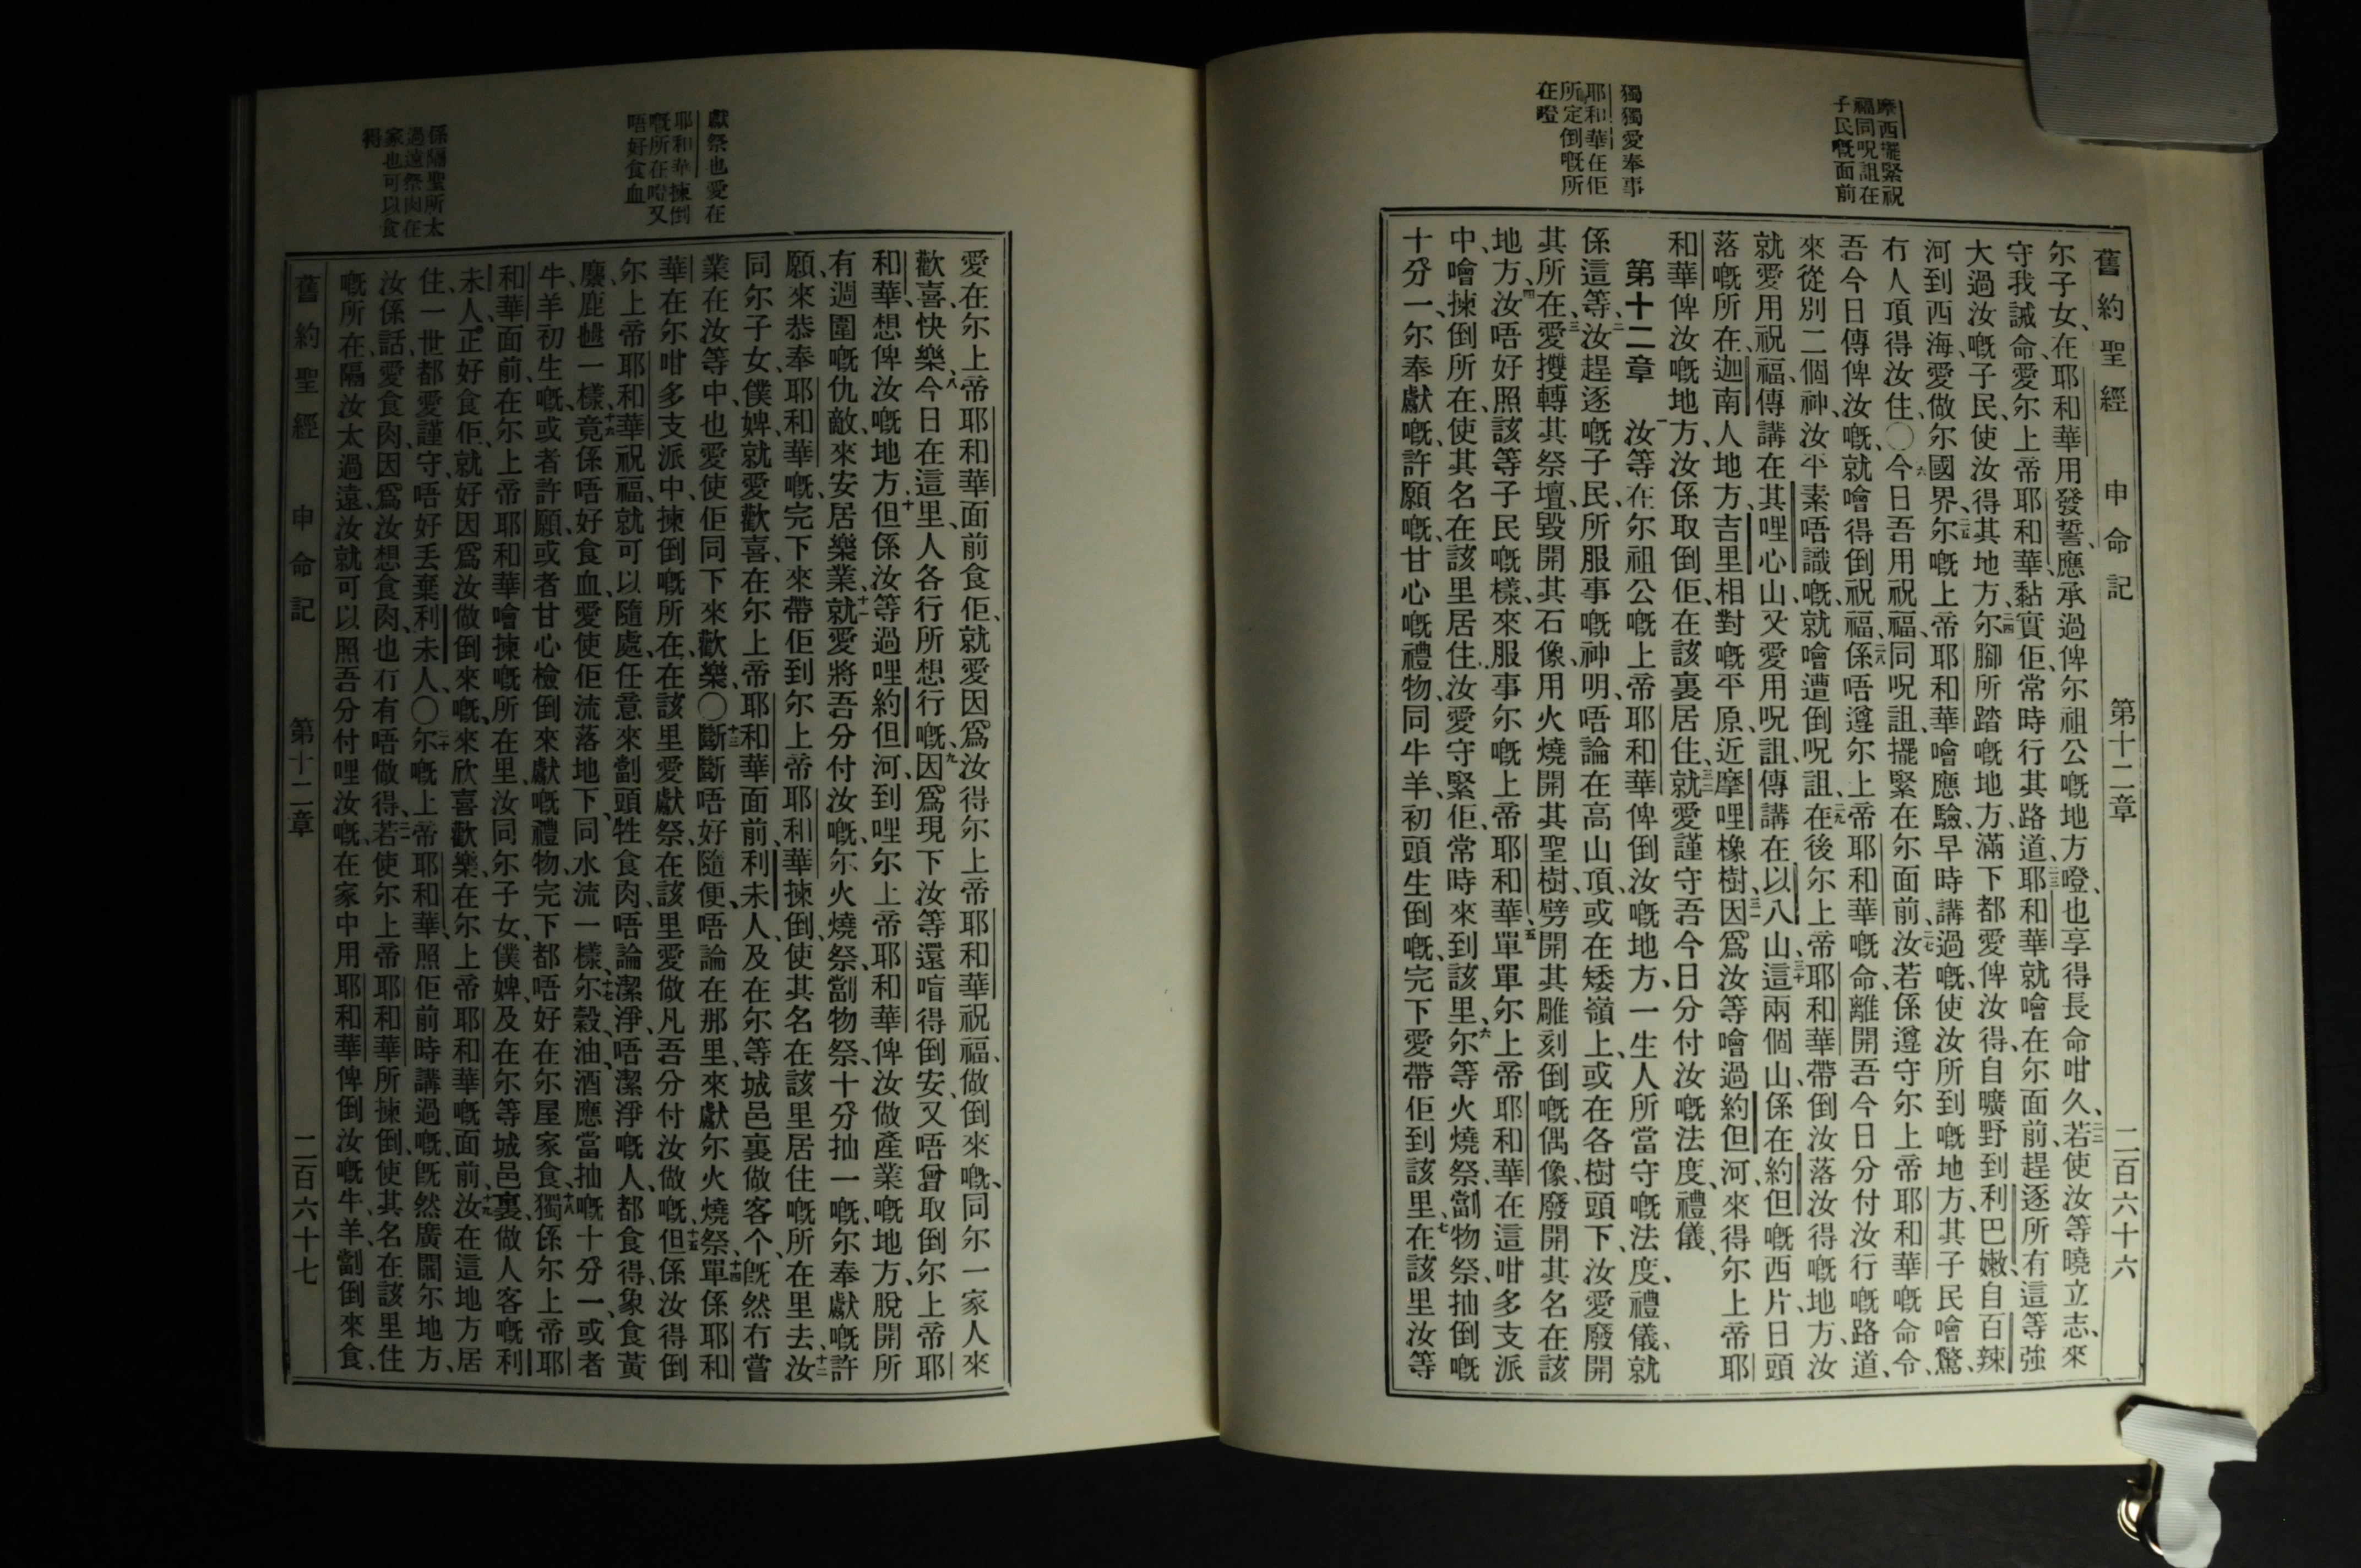 舊約聖經 申命記 第十二章 二百六十六
摩西擺緊祝
福同呪詛在
子民嘅面前
獨獨愛奉事
耶和華在佢
所定倒嘅所
在嶝
尔子女、在耶和華用發誓、應承過俾尔祖公嘅地方嶝、也享得長命咁久、二二若使汝等曉立志、來
守我誡命、愛尔上帝耶和華、黏實佢、常時行其路道、二三耶和華就噲在尔面前、趕逐所有這等強
大過汝嘅子民、使汝得其地方、二四尔腳所踏嘅地方、滿下都愛俾汝得、自曠野到利巴嫩、自百辣
河到西海、愛做尔國界、二五尔嘅上帝耶和華噲應驗、早時講過嘅、使汝所到嘅地方、其子民噲驚、
冇人頂得汝住、〇二六今日吾用祝福、同呪詛、擺緊在尔面前、二七汝若係遵守尔上帝耶和華嘅命令、
吾今日傳俾汝嘅、就噲得倒祝福、二八係唔遵尔上帝耶和華嘅命、離開吾今日分付汝行嘅路道、
來從別二個神、汝平素唔識嘅、就噲遭倒呪詛、二九在後尔上帝耶和華帶倒汝落汝得嘅地方、汝
就愛用祝福、傳講在其哩心山、又愛用呪詛、傳講在以八山、三十這兩個山、係在約但嘅西片、日頭
落嘅所在、迦南人地方、吉里相對嘅平原、近摩哩橡樹、三一因爲汝等噲過約但河、來得尔上帝耶
和華俾汝嘅地方、汝係取倒佢、在該裏居住、三二就愛謹守吾今日分付汝嘅法度、禮儀、
第十二章 一汝等在尔祖公嘅上帝耶和華俾倒汝嘅地方、一生人所當守嘅法度、禮儀、就
係這等、二汝趕逐嘅子民、所服事嘅神明、唔論在高山頂、或在矮嶺上、或在各樹頭下、汝愛廢開
其所在、三愛㩴轉其祭壇、毀開其石像、用火燒開其聖樹、劈開其雕刻倒嘅偶像、廢開其名在該
地方、四汝唔好照該等子民嘅樣、來服事尔嘅上帝耶和華、五單單尔上帝耶和華在這咁多支派
中、噲揀倒所在、使其名在該里居住、汝愛守緊佢、常時來到該里、六尔等火燒祭、劏物祭、抽倒嘅
十分一、尔奉獻嘅、許願嘅、甘心嘅禮物、同牛羊、初頭生倒嘅、完下愛帶佢到該里、七在該里汝等
獻祭也愛在
耶和華揀倒
嘅所在嶝又
唔好食血
係隔聖所太
過遠祭肉在
家也可以食
得
愛在尔上帝耶和華面前食佢、就愛因爲汝得尔上帝耶和華祝福、做倒來嘅、同尔一家人來
歡喜快樂、八今日在這里、人各行所想行嘅、九因爲現下汝等還唔得倒安、又唔曾取倒尔上帝耶
和華想俾汝嘅地方、十但係汝等過哩約但河、到哩尔上帝耶和華俾汝做產業嘅地方、脫開所
有週圍嘅仇敵、來安居樂業、十一就愛將吾分付汝嘅、尔火燒祭、劏物祭、十分抽一嘅、尔奉獻嘅、許
願來恭奉耶和華嘅、完下來帶佢到尔上帝耶和華揀倒、使其名在該里居住嘅所在里去、十二汝
同尔子女、僕婢、就愛歡喜、在尔上帝耶和華面前、利未人、及在尔等城邑裏做客个、旣然冇嘗
業在汝等中、也愛使佢同下來歡樂、〇十三斷斷唔好隨便、唔論在那里、來獻尔火燒祭、十四單係耶和
華在尔咁多支派中、揀倒嘅所在、在該里愛獻祭、在該里愛做凡吾分付汝做嘅、十五但係汝得倒
尔上帝耶和華祝福、就可以隨處任意來劏頭牲食肉、唔論潔淨、唔潔淨嘅人、都食得、象食黃
麖鹿䶉一樣、十六竟係唔好食血、愛使佢流落地下、同水流一樣、十七尔穀、油、酒應當抽嘅十分一、或者
牛羊初生嘅、或者許願、或者甘心檢倒來獻嘅禮物、完下都唔好在尔屋家食、十八獨係尔上帝耶
和華面前、在尔上帝耶和華噲揀嘅所在里、汝同尔子女、僕婢、及在尔等城邑裏、做人客嘅利
未人、正好食佢、就好因爲汝做倒來嘅、來欣喜歡樂、在尔上帝耶和華嘅面前、十九汝在這地方居
住、一世都愛謹守、唔好丟棄利未人、〇二十尔嘅上帝耶和華、照佢前時講過嘅、旣然廣闊尔地方、
汝係話、愛食肉、因爲汝想食肉、也冇有唔做得、二一若使尔上帝耶和華所揀倒、使其名在該里住
嘅所在、隔汝太過遠、汝就可以照吾分付哩汝嘅、在家中用耶和華俾倒汝嘅牛羊、劏倒來食、
舊約聖經 申命記 第十二章 二百六十七